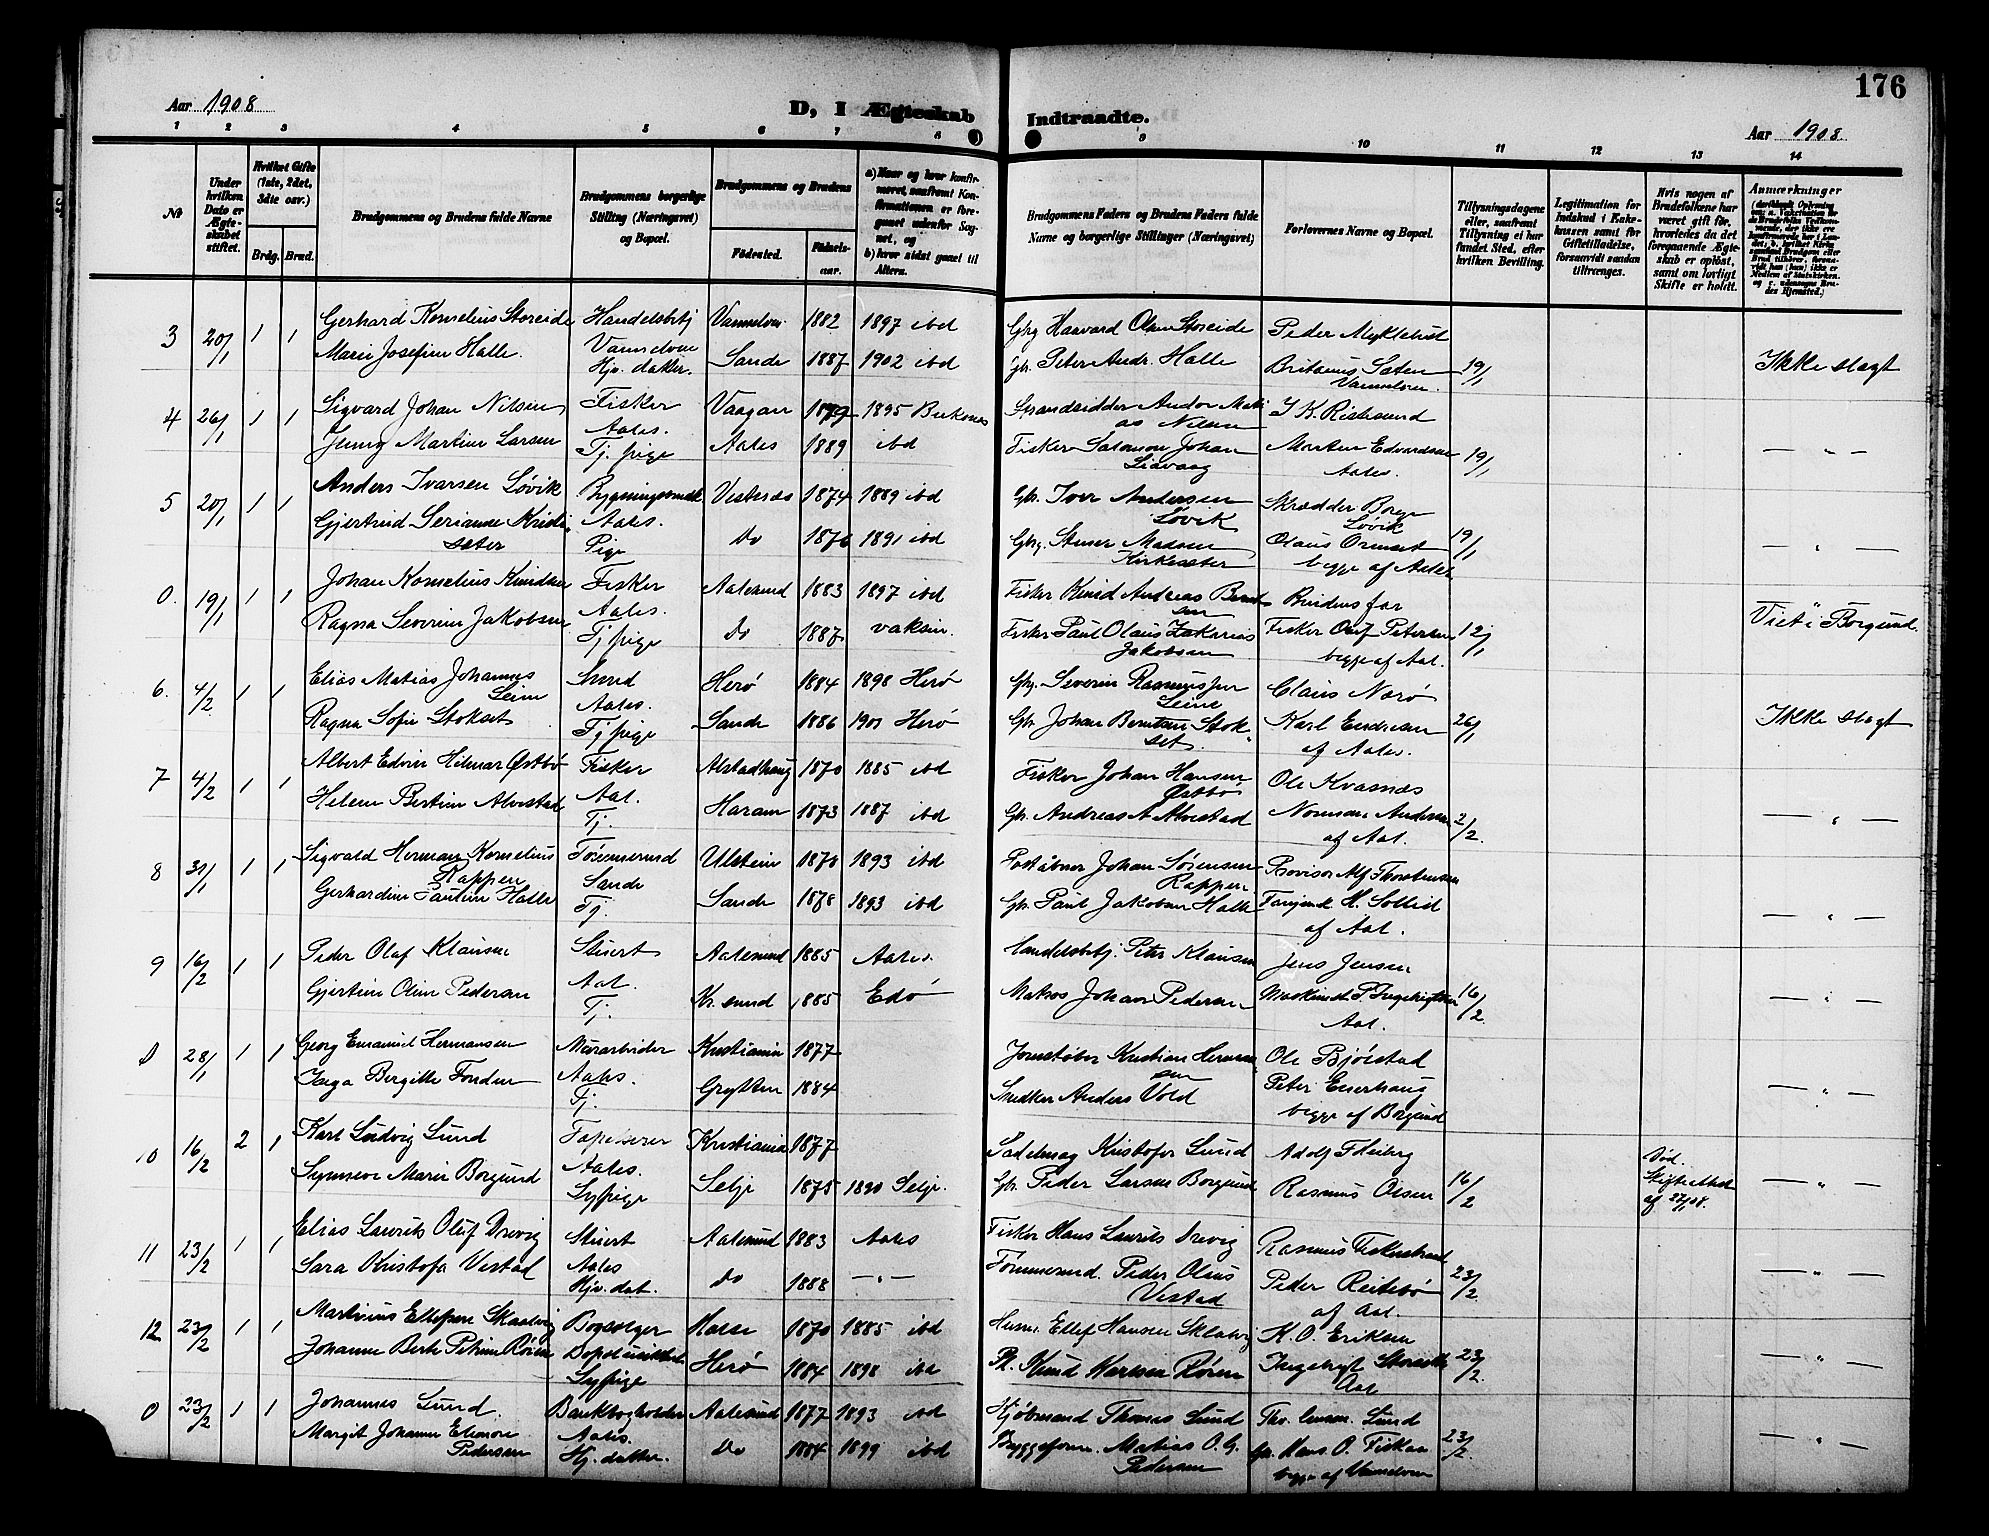 176
Aar 1908
D, I Ægteskab Indtraadte.
Aar 1908.
1 2 3 4 5 6 7 8 9 10 11 12 13 14
№
Under hvilken Dato er Ægteskabet stiftet.
Hvilket Gifte (1ste, 2det, 3die osv.)
Brdg. Brud.
Brudgommens og Brudens fulde Navne
Brudgommens borgerlige Stilling (Næringsvei) og Bopæl.
Brudgommens og Brudens
Fødested. Fødselsaar.
a) Naar og hvor konfirmeret, saafremt Konfirmationen er foregaaet udenfor Sognet, og
b) hvor sidst gaaet til Alters.
Brudgommens Faders og Brudens Faders fulde Navne og borgerlige Stillinger (Næringsvei)
Forlovernes Navne og Bopæl.
Tillysningsdagene eller, saafremt Tillysning ei har fundet Sted, efter hvilken Bevilling.
Legitimation for Indskud i Enkekassen samt for Giftetilladelse, forsaavidt saadan tiltrænges.
Hvis nogen af Brudefolkene har været gift før, hvorledes da det foregaaende Ægteskab er opløst, samt om lovligt Skifte er holdt.
Anmærkninger
3 20/1 1 1 Gerhard Kornelius Storeide Handelsbetj Vannelven 1882 1897 ibd Gbg Haavard Olsen Storeide Peder Myklebust
Marie Josefine Halle. Vannelven Hjv. datter. Sande 1887 1902 ibd Gbr. Peter Andr. Halle Britanus Sæten Vannelven. 19/1 Ikke slagt
4 26/1 1 1 Sigvard Johan Nilsen Fisker Vaagan 1879 1895 Strandsidder Andor Nilsen J K. Ristesund
Jenny Martine Larsen Aales. Tj. pige Aales 1889 ibd Fisker Salomon Johan Morten Edvardsen Aales. 19/1 — „ —
5 20/1 1 1 Anders Ivarsen Løvik Vestenæs 1874 1889 ibd Gbr. Iver Andersen Løvik Skrædder Løvik
Gjertrud Serianne Aales. Pige Do 1876 1891 ibd Gbg. Madsen Kirkesæter Olaus Ormset begge af Aales. 19/1 — „ —
0. 19/1 1 1 Johan Kornelius Knudsen Fisker Aalesund 1883 1897 ibd Fisker Knud Andreas Berntsen Brudens far
Ragna Severine Jakobsen Aales. Tj pige Do 1887 vaksin. Fisker Paul Olaus Zakarias Jakobsen Fisker Oluf Petersen begge af Aal. 12/1 Viet i Borgund.
6. 4/2 1 1 Elias Matias Johannes Leine Smed Herö 1884 1898 Herö Gbg. Severin Rasmussen Leine Claus Nærö
Ragna Sofie Stokset Aales. Tj pige Sande 1886 1901 Herö Gbr. Johan Berntsen Stokset. Karl Endresen af Aales. 26/1 Ikke slagt
7 4/2 1 1 Albert Edvin Hilmar Østbø Fisker Alstadhaug 1870 1885 ibd Fisker Johan Hansen Østbø Ole Kvasnæs
Helene Bertine Alvestad Aal. Tj. Haram 1873 1887 ibd Gbr. Andreas A Alvestad Normann Andersen af Aal. 2/2. — „ —
8 31/1 1 1 Sigvald Herman Kornelius Rappen Tømmermd Ulstein 1870 1893 ibd Postaabner Johan Sørensen Rappen Provisor Alf Thorstensen
Gerhardine Pauline Halle Sande Tj. Sande 1878 1893 ibd Gbr. Paul Jakobsen Halle H. Sollid af Aal. — „ —
9 16/2 1 1 Peder Olaf Klausen Stuert Aalesund 1885 Aales. Handelsbetj. Peter Klausen Jens Jensen
Gjertine Oline Pedersen Aal. Tj. Kr. sund 1885 Edö Matros Johan Pedersen Maskinist Ingebrigtsen Aal. 16/2. — „ —
D 28/1 1 1 Georg Emanuel Hermansen Murarbeider Kristiania 1877 Jernstøber Kristian Hermansen Ole Bjørstad
Inga Bergitte Fonden Aales. Tj. Grytten 1884 Snedker Anders Vold Peter Emerhaug begge af Borgund — „ —
10 16/2 2 1 Karl Ludvig Lund Tapetserer Kristiania 1877 Sadelmag Kristofer Lund Adolf Thiberg
Synneve Marie Borgund Aales. Sypige Selje 1875 1890 Selje. Gbr. Peder Larsen Borgund Rasmus Olsen 16/2 Død. Skifteattest af — „ —
11 23/2 1 1 Elias Laurits Oluf Drevig Stuert Aalesund 1883 Aales Fisker Hans Laurits Drevig Rasmus Fiskerstrand
Sara Kristofa Vestad Aales Hjv. dat. Do 1888 — „ — Tømmermd. Peder Olaus Vestad Peder Reitebø af Aal. 23/2. — „ —
12 23/2 1 1 Martinius Ellefsen Skaalvig Bogsælger 1870 1885 ibd Ellef Hansen K. O. Eriksen
Johanne Berte Petrine Røren Sypige Herö 1884 1898 ibd Knud Røren Ingebrigt Aal 23/2. — „ —
0 23/2 1 1 Johannes Lund. Bankbogholder Aalesund 1877 1893 ibd Kjøbmand Thomas Lund Lund
Margit Johanne Elenore Pedersen Aales. Hj. datter. Do 1884 1899 ibd Matias O. G. Pedersen Hans O. Fisken begge af Vannelven 23/2. — „ —